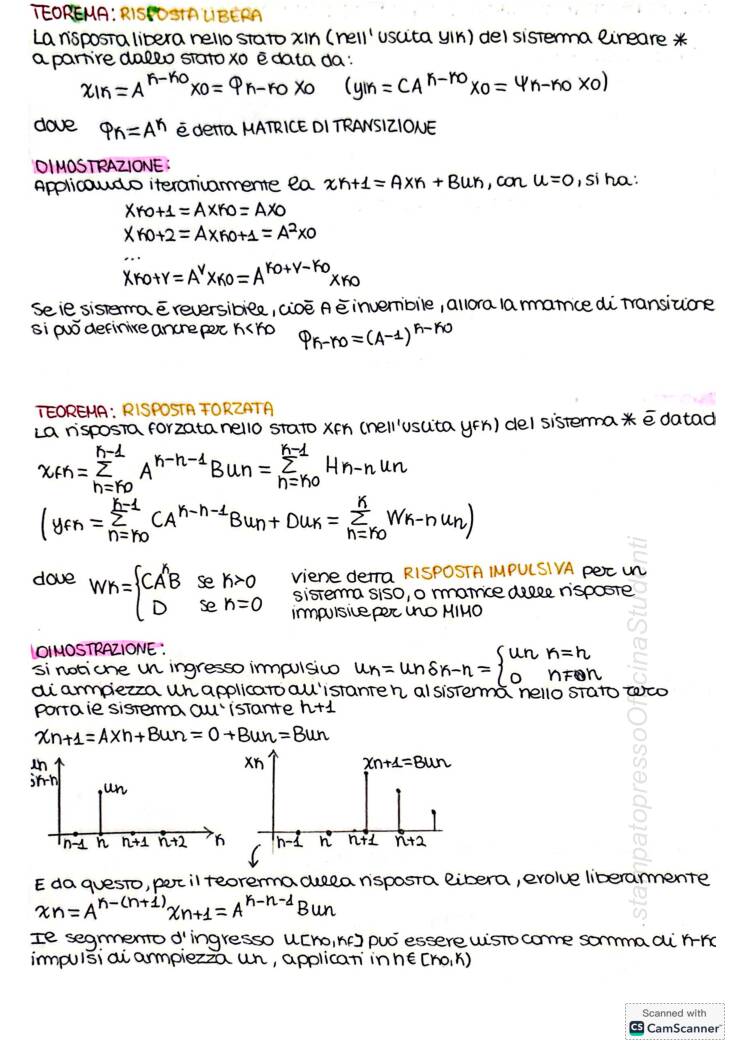 TEOREMA: RISPOSTA LIBERA
La risposta libera nello stato xlk (nell'uscita ylk) del sistema lineare *
a partire dallo stato x0 è data da:
xlk = A^(k-k0) x0 = φk-k0 x0 (ylk = CA^(k-k0) x0 = ψk-k0 x0)
dove φk = A^k è detta MATRICE DI TRANSIZIONE
DIMOSTRAZIONE:
Applicando iterativamente la xk+1 = Axk + Buk, con u=0, si ha:
xk0+1 = Axk0 = Ax0
xk0+2 = Axk0+1 = A²x0
...
xk0+v = A^v xk0 = A^(k0+v-k0) xk0
Se il sistema è reversibile, cioè A è invertibile, allora la matrice di transizione
si può definire anche per k<k0 φk-k0 = (A-1)^(k-k0)
TEOREMA: RISPOSTA FORZATA
La risposta forzata nello stato xfk (nell'uscita yfk) del sistema * è data d
xfk = Σ(h=k0)^(k-1) A^(k-h-1) Buh = Σ(h=k0)^(k-1) Hk-h uh
(yfk = Σ(h=k0)^(k-1) CA^(k-h-1) Buh + Duk = Σ(h=k0)^k Wk-h uh)
dove Wk = { CA^kB se k>0 viene detta RISPOSTA IMPULSIVA per un
D se k=0 sistema SISO, o matrice delle risposte
impulsive per uno MIMO
DIMOSTRAZIONE:
Si noti che un ingresso impulsivo uk = uh δk-h = { uh k=h
0 h≠h
di ampiezza uh applicato all'istante h al sistema nello stato zero
porta il sistema all'istante h+1
xh+1 = Axh + Buh = 0 + Buh = Buh
uh δk-h uh h-1 h h+1 h+2 k
xk xh+1 = Buh h-1 h h+1 h+2
E da questo, per il teorema della risposta libera, evolve liberamente
xk = A^(k-(h+1)) xh+1 = A^(k-h-1) Buh
Il segmento d'ingresso u[k0,kf] può essere visto come somma di k-k
impulsi di ampiezza uh, applicati in h∈[k0,k)
.stampatopressoOfficinaStudenti
Scanned with
CS CamScanner